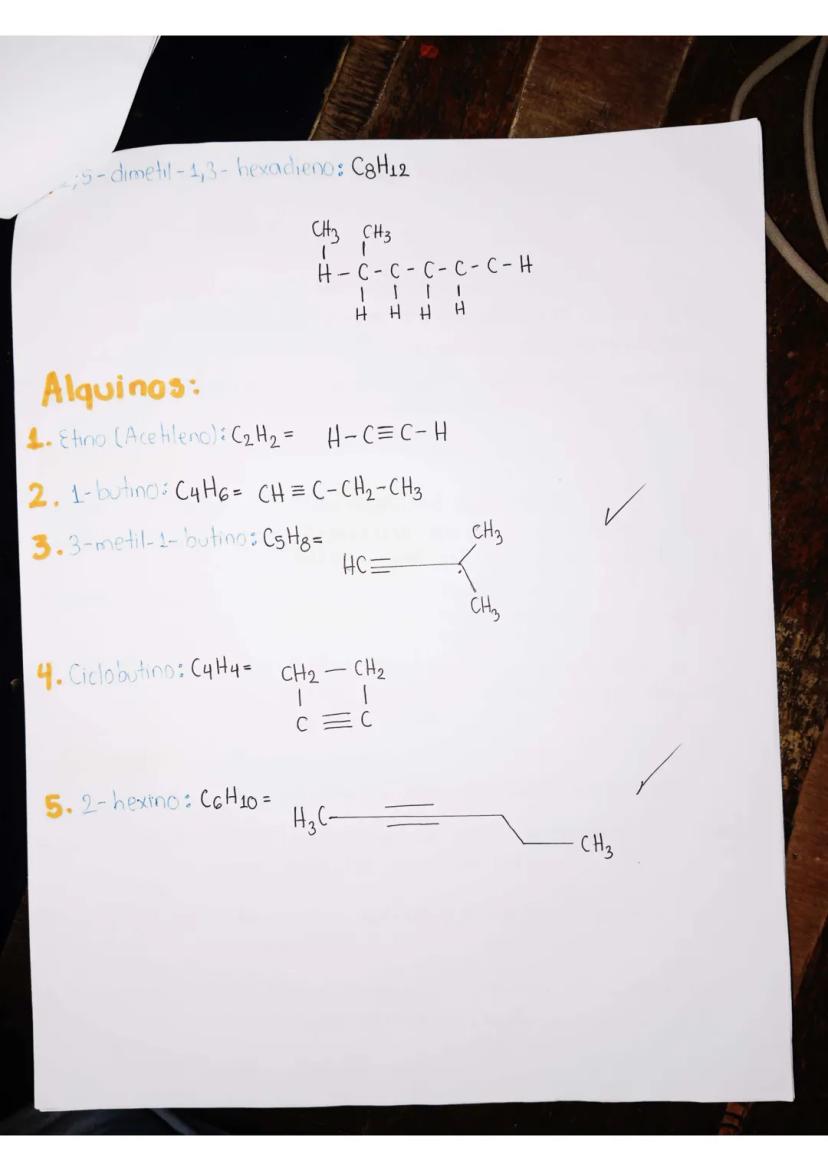 2,5-dimetil-1,3-hexadieno: C8H12
CH3 CH3
H-C-C-C-C-C-H
H H H H
Alquinos:
1. Etino (Acetileno): C2H2= H-C≡C-H
2. 1-butino: C4H6= CH≡C-CH2-CH3
3. 3-metil-1-butino: C5H8=
CH3
HC≡
CH3
4. Ciclobutino: C4H4= CH2-CH2
C≡C
5. 2-hexino: C6H10=
H3C
CH3